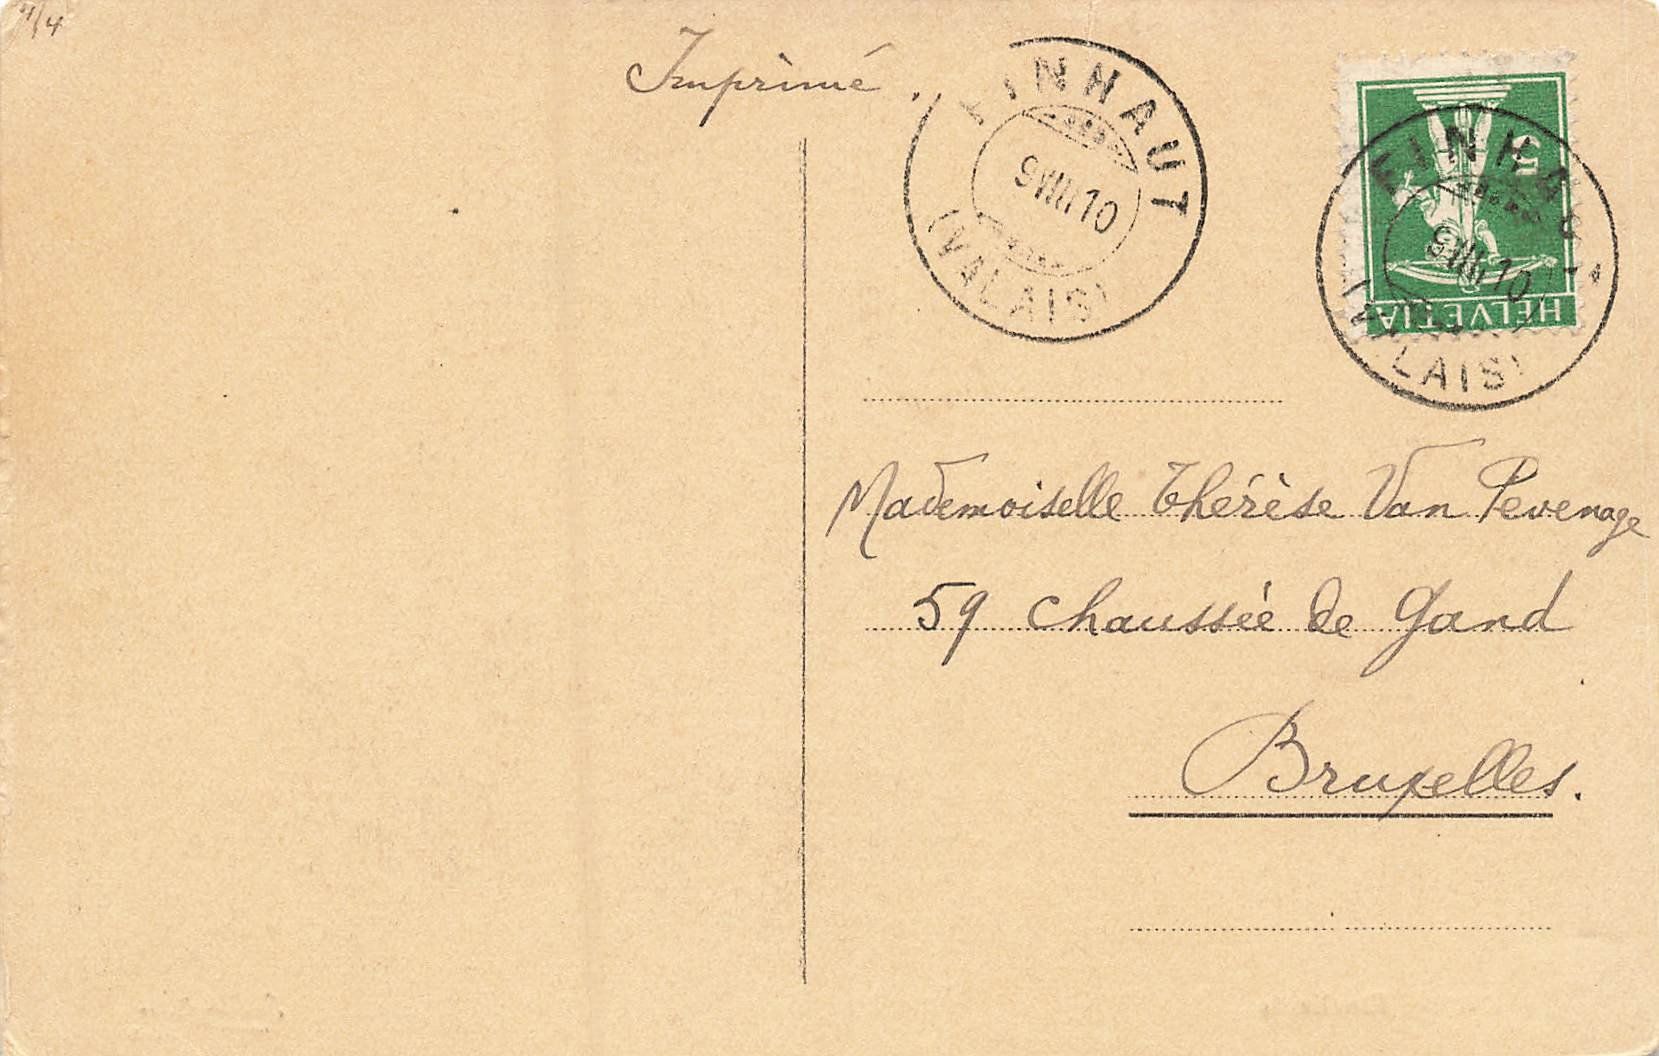 4/4
Imprimé.
FINHAUT
9 VIII 10
(VALAIS)
5
HELVETIA
FINHAUT
9 VIII 10
(VALAIS)
Mademoiselle Thérèse Van Pevenage
59 Chaussée de Gand
Bruxelles.